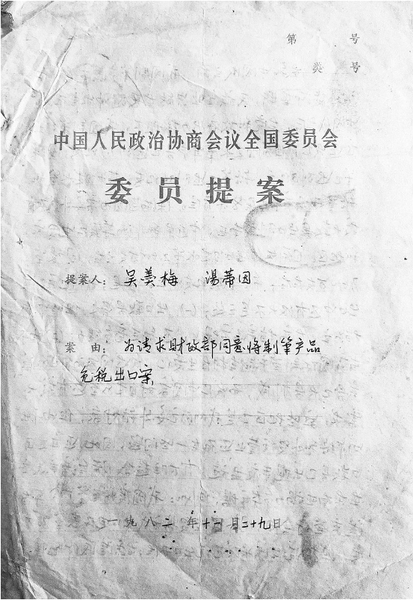 第 号
类 号
中国人民政治协商会议全国委员会
委员提案
提案人: 吴羹梅 汤蒂因
案由: 为请求财政部同意将制笔产品
免税出口案
一九八二年十一月二十九日